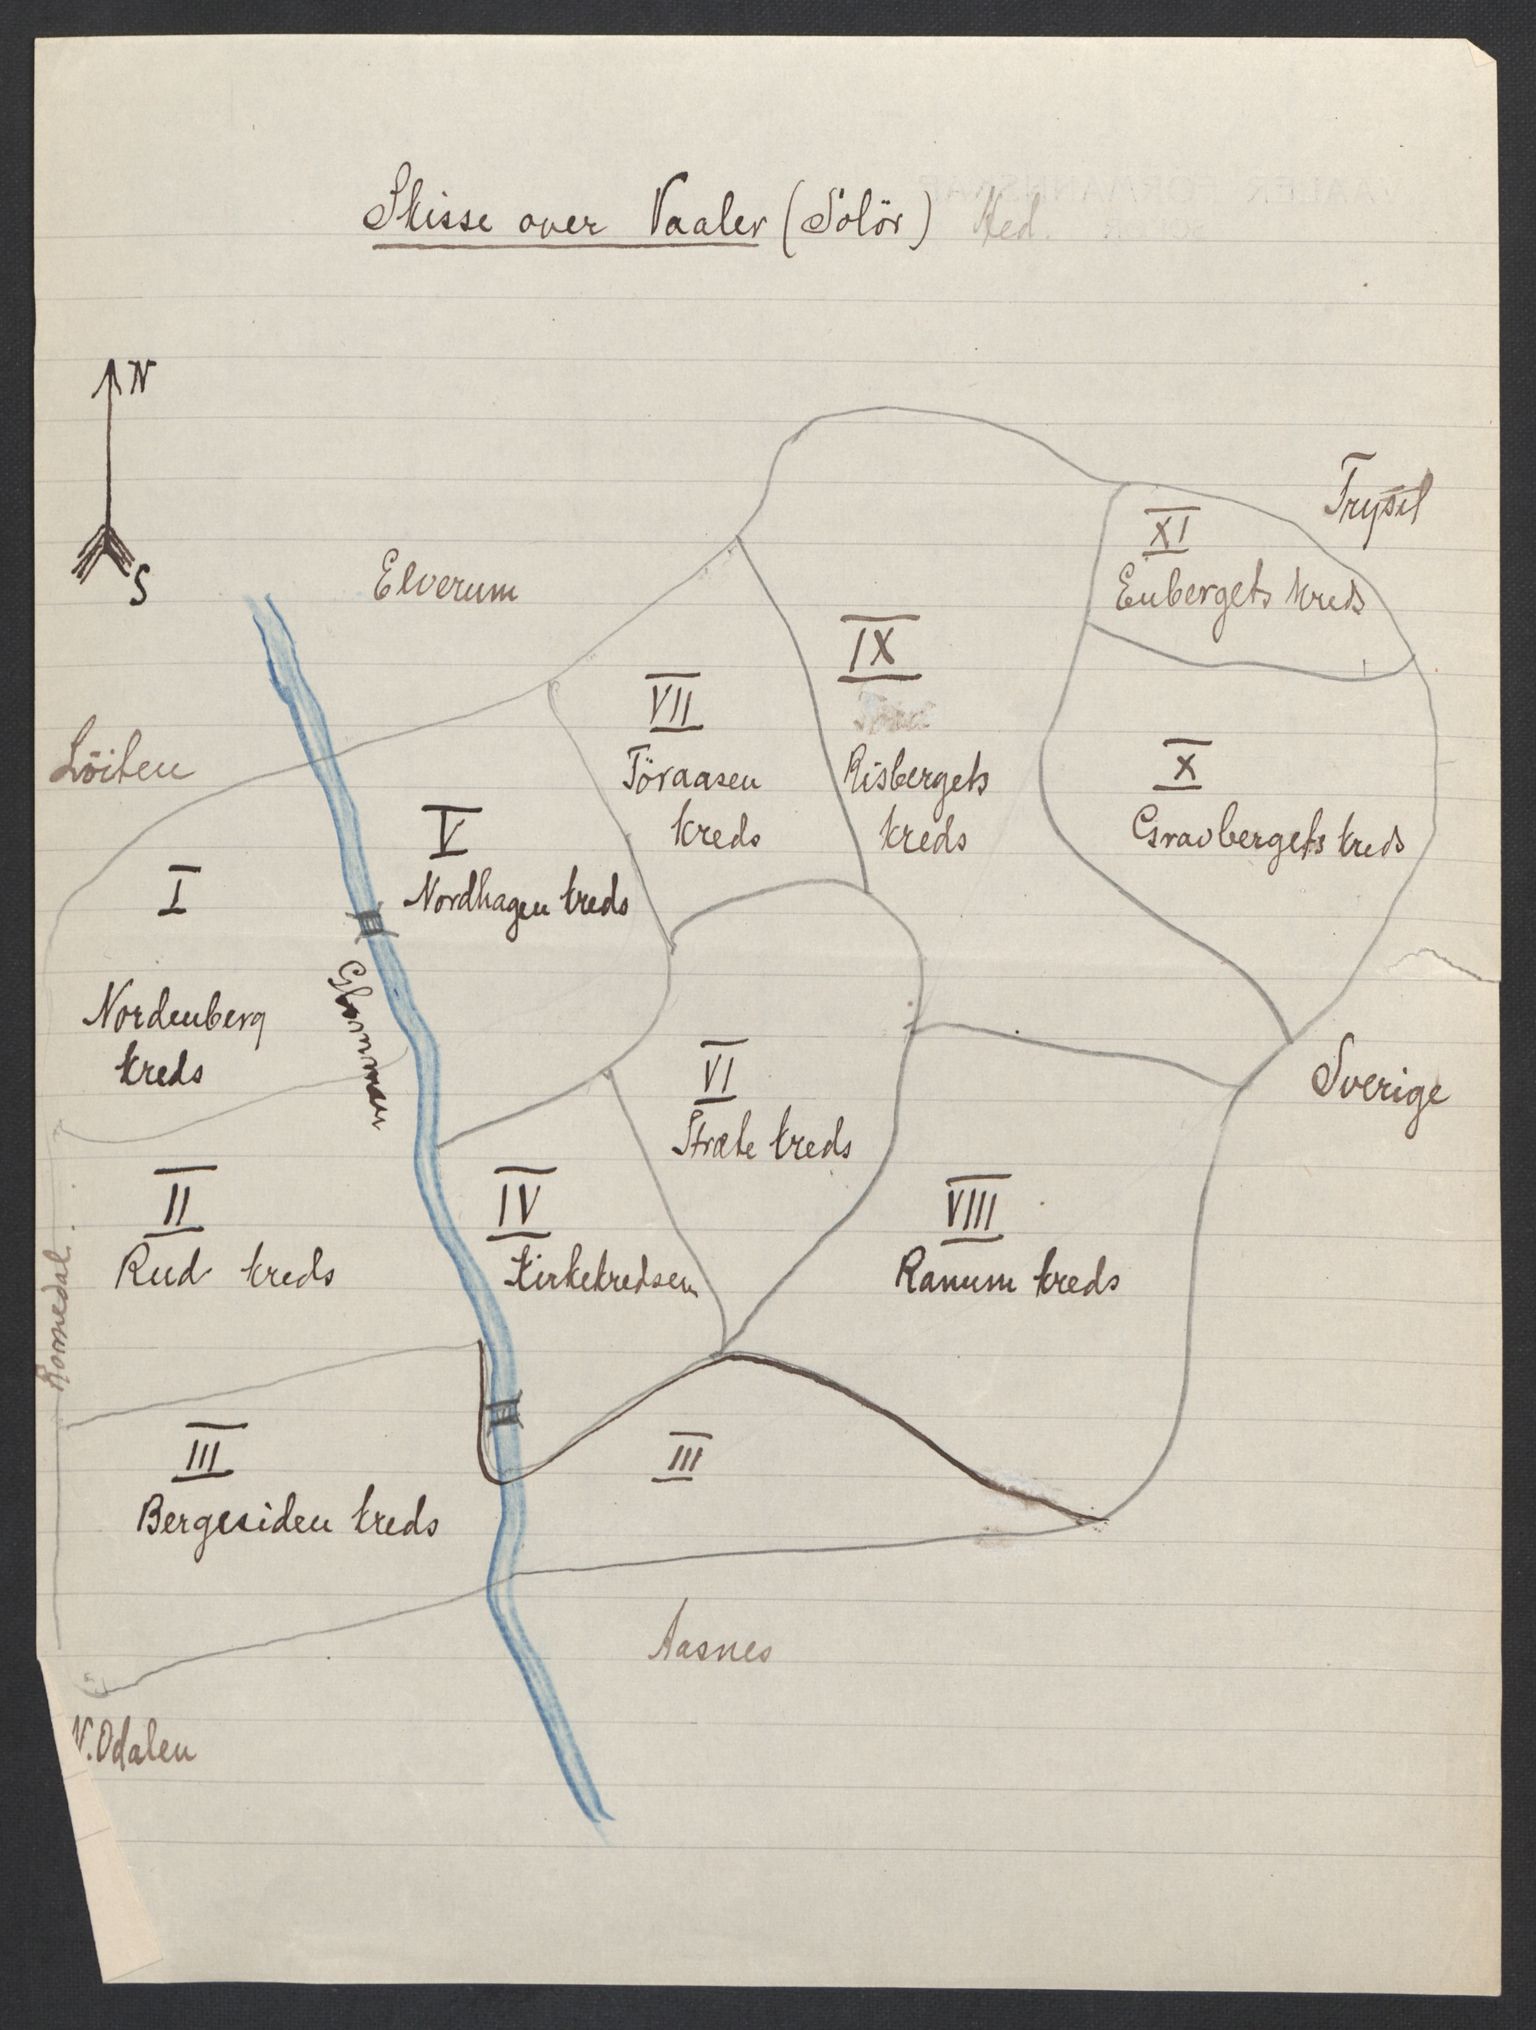 Skisse over Vaaler (Solör) Hed.
N
S
Trysil
XI
Eubergets kreds
Elverum
IX
VII
Risbergets
kreds
Töraasen
kreds
X
Gravbergets kreds
Löiten
V
Nordhagen kreds
I
Nordenberg
kreds
Glommen
VI
Stræte kreds
Sverige
II
Rud kreds
IV
Kirkekredsen
VIII
Ranum kreds
Romedal.
III
Bergesiden kreds
III
Aasnes
N. Odalen